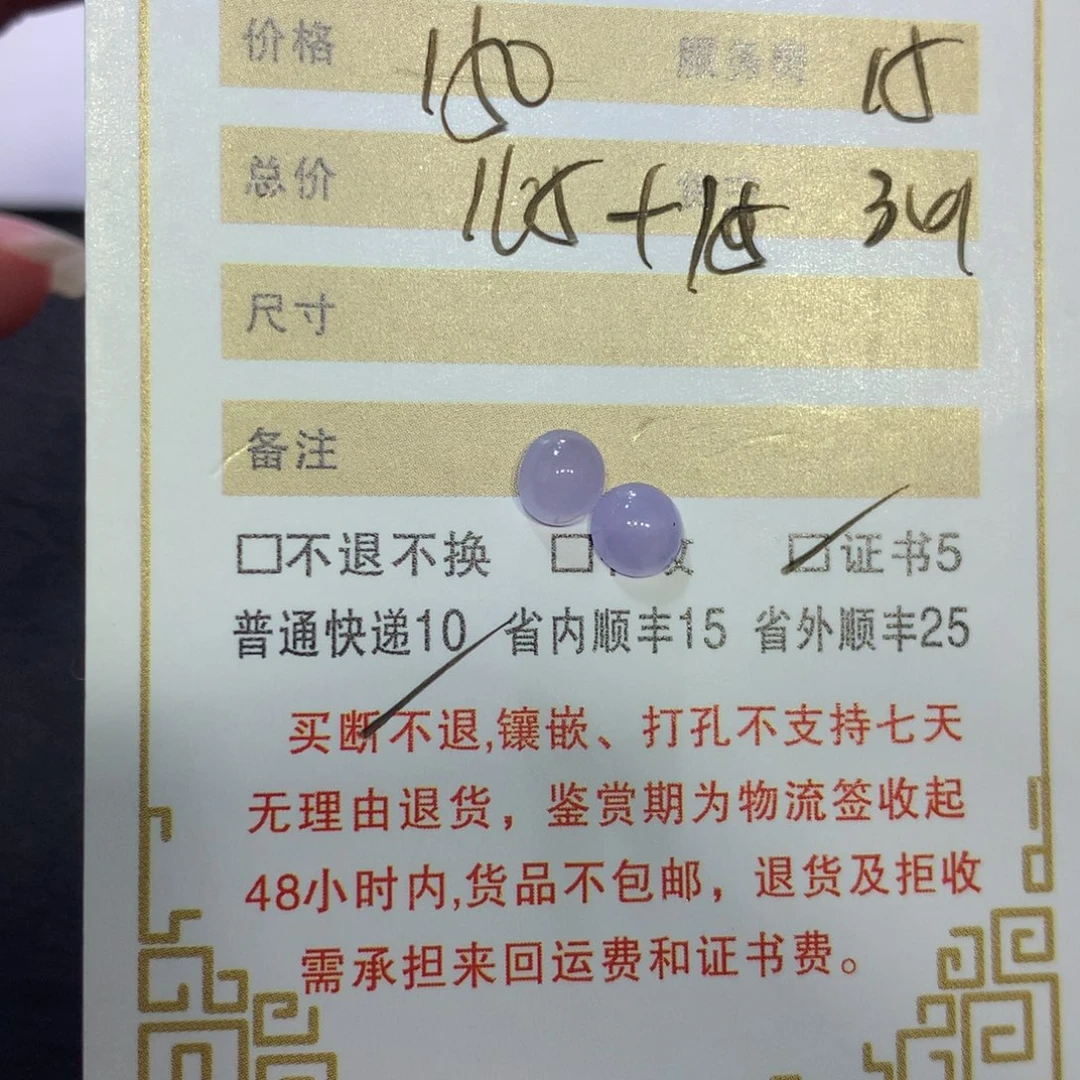 价格 150 服务费 15
总价 165+15
尺寸
备注
□不退不换 □ 证书5
普通快递10 省内顺丰15 省外顺丰25
买断不退,镶嵌、打孔不支持七天
无理由退货，鉴赏期为物流签收起
48小时内,货品不包邮，退货及拒收
需承担来回运费和证书费。